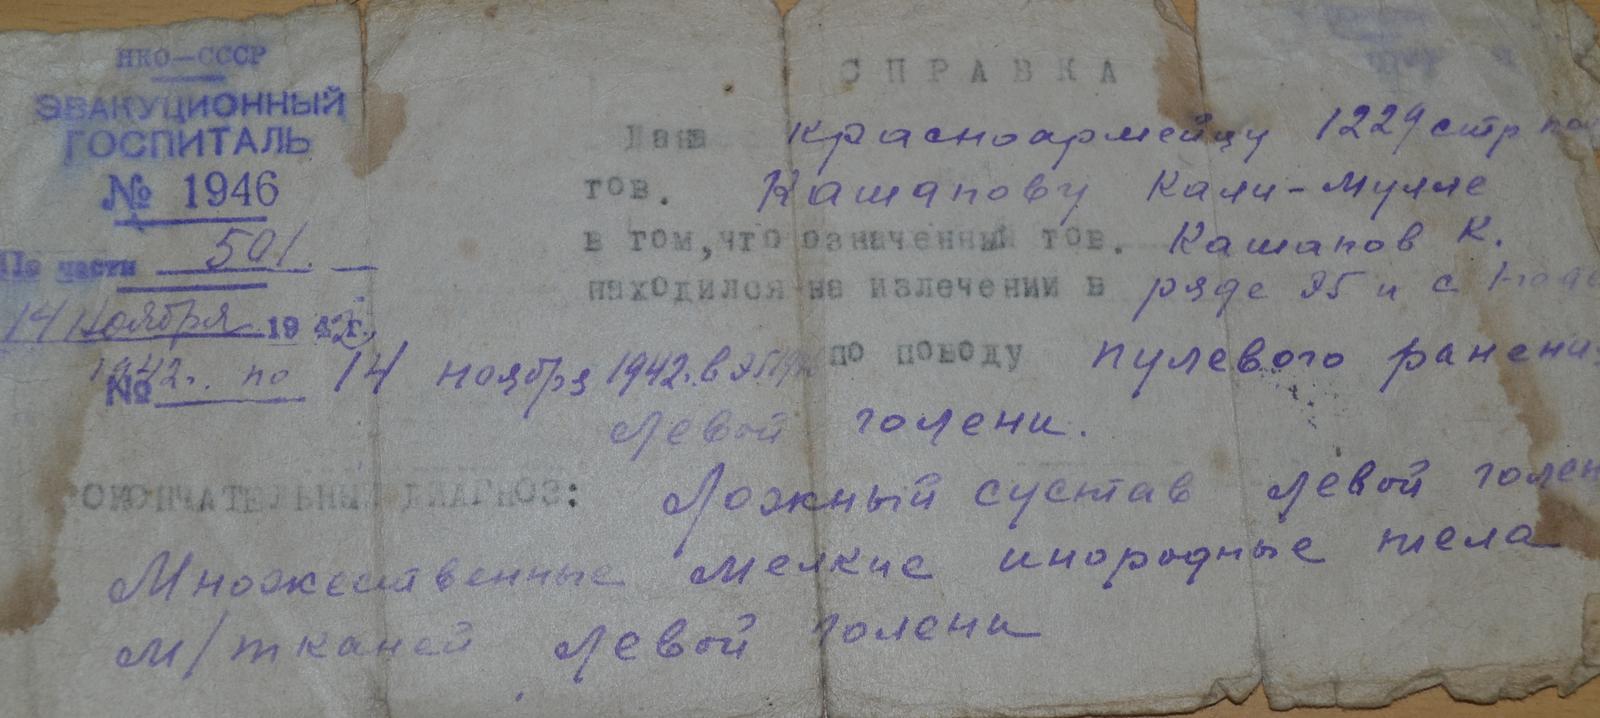 НКО—СССР
ЭВАКУЦИОННЫЙ
ГОСПИТАЛЬ
№ 1946
По части 501.
14 Ноября 1942г.
№
СПРАВКА
Дана красноармейцу 1229 стр
тов. Кашапову Кали-Мулле
в том, что означенный тов. Кашапов К.
находился на излечении в ряде ЭГ и с
1942г. по 14 ноября 1942г. в ЭГ 1946 по поводу пулевого ранени
левой голени.
ОКОНЧАТЕЛЬНЫЙ ДИАГНОЗ: Ложный сустав левой голен
Множественные мелкие инородные тела
м/тканей левой голени